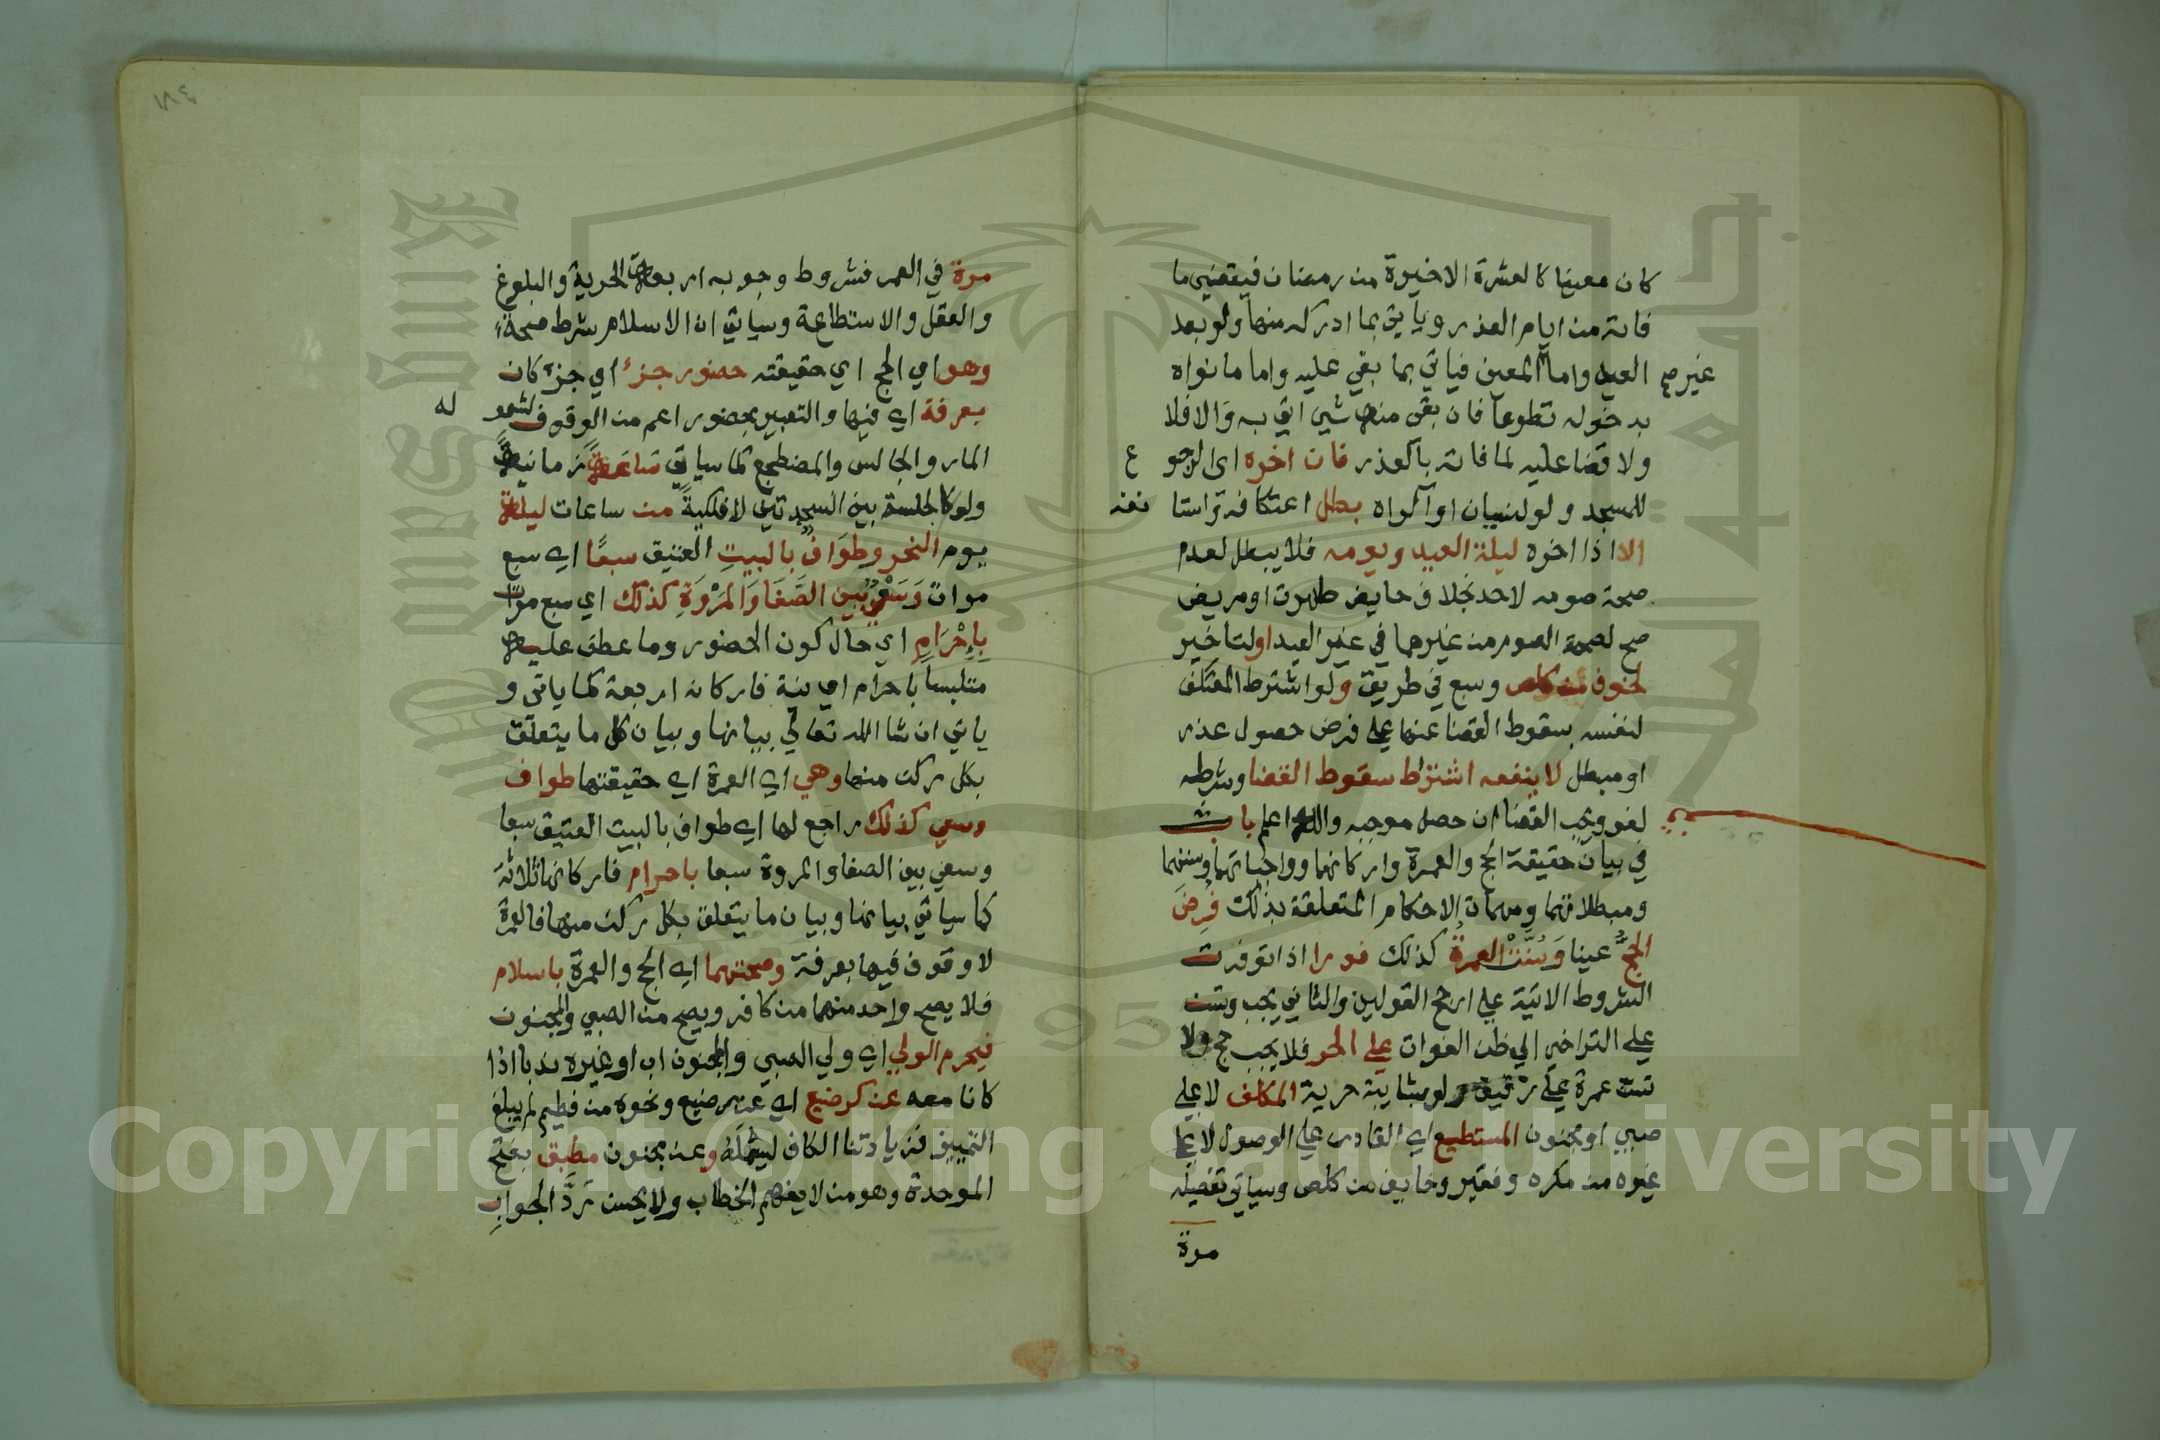 كان معينا كالعشرة الاخيرة من رمضان فيقضي ما
فاته من ايام العذر وياتي بما ادركه منها ولو بعد
العيد واما المعين فياتي بما بقي عليه واما ما نواه
غير صح
بدخوله تطوعا فان بقي منه شي اتي به والا فلا
ولا قضا عليه لما فاته بالعذر فان اخره اي الرجو
ع
للمسجد ولو لنسيان او اكراه بطل اعتكافه واستا
نفه
الا اذا اخره ليلة العيد ويومه فلا يبطل لعدم
صحة صومه لاحد بخلاف حايض طهرت او مريض
صح لصحة الصوم من غيرهما في غير العيد او لتاخير
لخوف من كلص وسبع في طريق ولو اشترط المعتكف
لنفسه سقوط القضا عنه علي فرض حصول عذر
او مبطل لا ينفعه اشتراط سقوط القضا وشرطه
لغو ويجب القضا ان حصل موجبه والله اعلم باب
في بيان حقيقة الحج والعمرة واركانهما وواجباتهما وسننهما
ومبطلاتهما ومهمات الاحكام المتعلقة بذلك فُرِضَ
الحجُّ عينا وَسُنَّتْ العمرةُ كذلك فورا اذا توفرت
الشروط الاتية علي ارجح القولين والثاني يجب وتسن
علي التراخي الي ظن الفوات علي الحر فلا يجب حج ولا
تسن عمرة علي رقيق ولو بشايبة حرية المكلف لا علي
صبي او مجنون المستطيع اي القادر علي الوصول لا علي
غيره من مكره وفقير وخايف من كلص وسياتي تفصيله
مرة
١٨٤
مرة في العمر فشروط وجوبه اربعة الحرية والبلوغ
والعقل والاستطاعة وسياتي ان الاسلام شرط صحة
وهو اي الحج اي حقيقته حضور جزء اي جزء كان
بعرفة اي فيها والتعبير بحضور اعم من الوقوف لشمو
له
المار والجالس والمضطجع كما سياتي ساعةً زمانيةً
ولو كالجلسة بين السجدتين لا فلكيةً من ساعات ليلة
يوم النحر وطوافٌ بالبيتِ العتيق سبعًا اي سبع
مرات وَسَعْيٌ بين الصَّفَا وَالمَرْوَةِ كذلك اي سبع مرات
بِإحْرَامٍ اي حال كون الحضور وما عطف عليه
متلبسا باحرام اي نية فاركانه اربعة كما ياتي و
ياتي ان شا الله تعالي بيانها وبيان كل ما يتعلق
بكل ركن منها وهي اي العمرة اي حقيقتها طواف
وسعي كذلك راجع لها اي طواف بالبيت العتيق سبعا
وسعي بين الصفا والمروة سبعا باحرام فاركانها ثلاثة
كما سياتي بيانها وبيان ما يتعلق بكل ركن منها فالعمرة
لا وقوف فيها بعرفة وصحتهما اي الحج والعمرة باسلام
فلا يصح واحد منهما من كافر ويصح من الصبي والمجنون
فيحرم الولي اي ولي الصبي والمجنون اب او غيره ندبا اذا
كانا معه عن كرضيع اي عن رضيع ونحوه من فطيم لم يبلغ
التمييز فزيادتنا الكاف ليشمله وعن مجنون مطبق بفتح
الموحدة وهو من لا يفهم الخطاب ولا يحسن رَدَّ الجوابِ
Copyright © King Saud University
King Saud University
جامعة الملك سعود